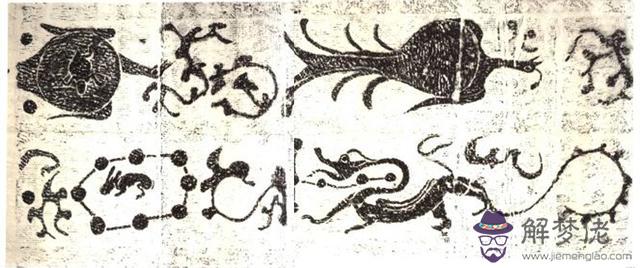 解梦佬
www.jiemenglao.com